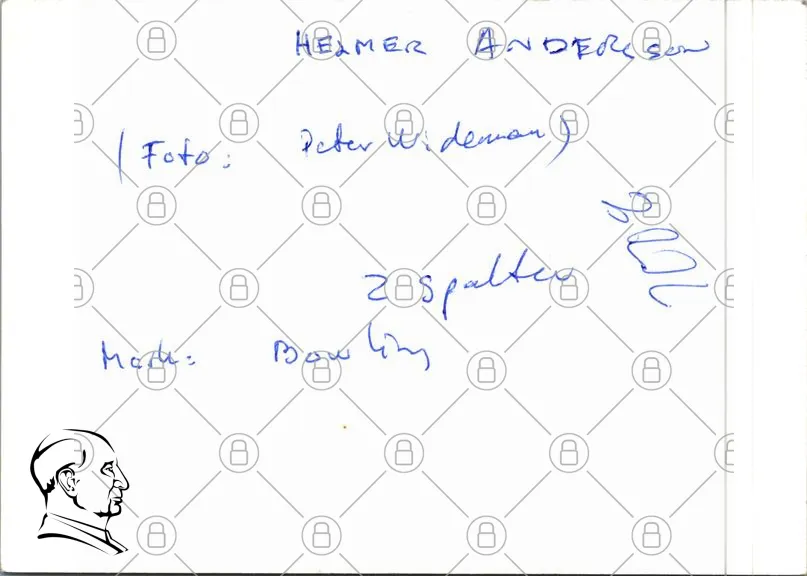 HELMER ANDERSSON
(Foto: Peter Wideman)
2 Spalter
Mark: Bowling